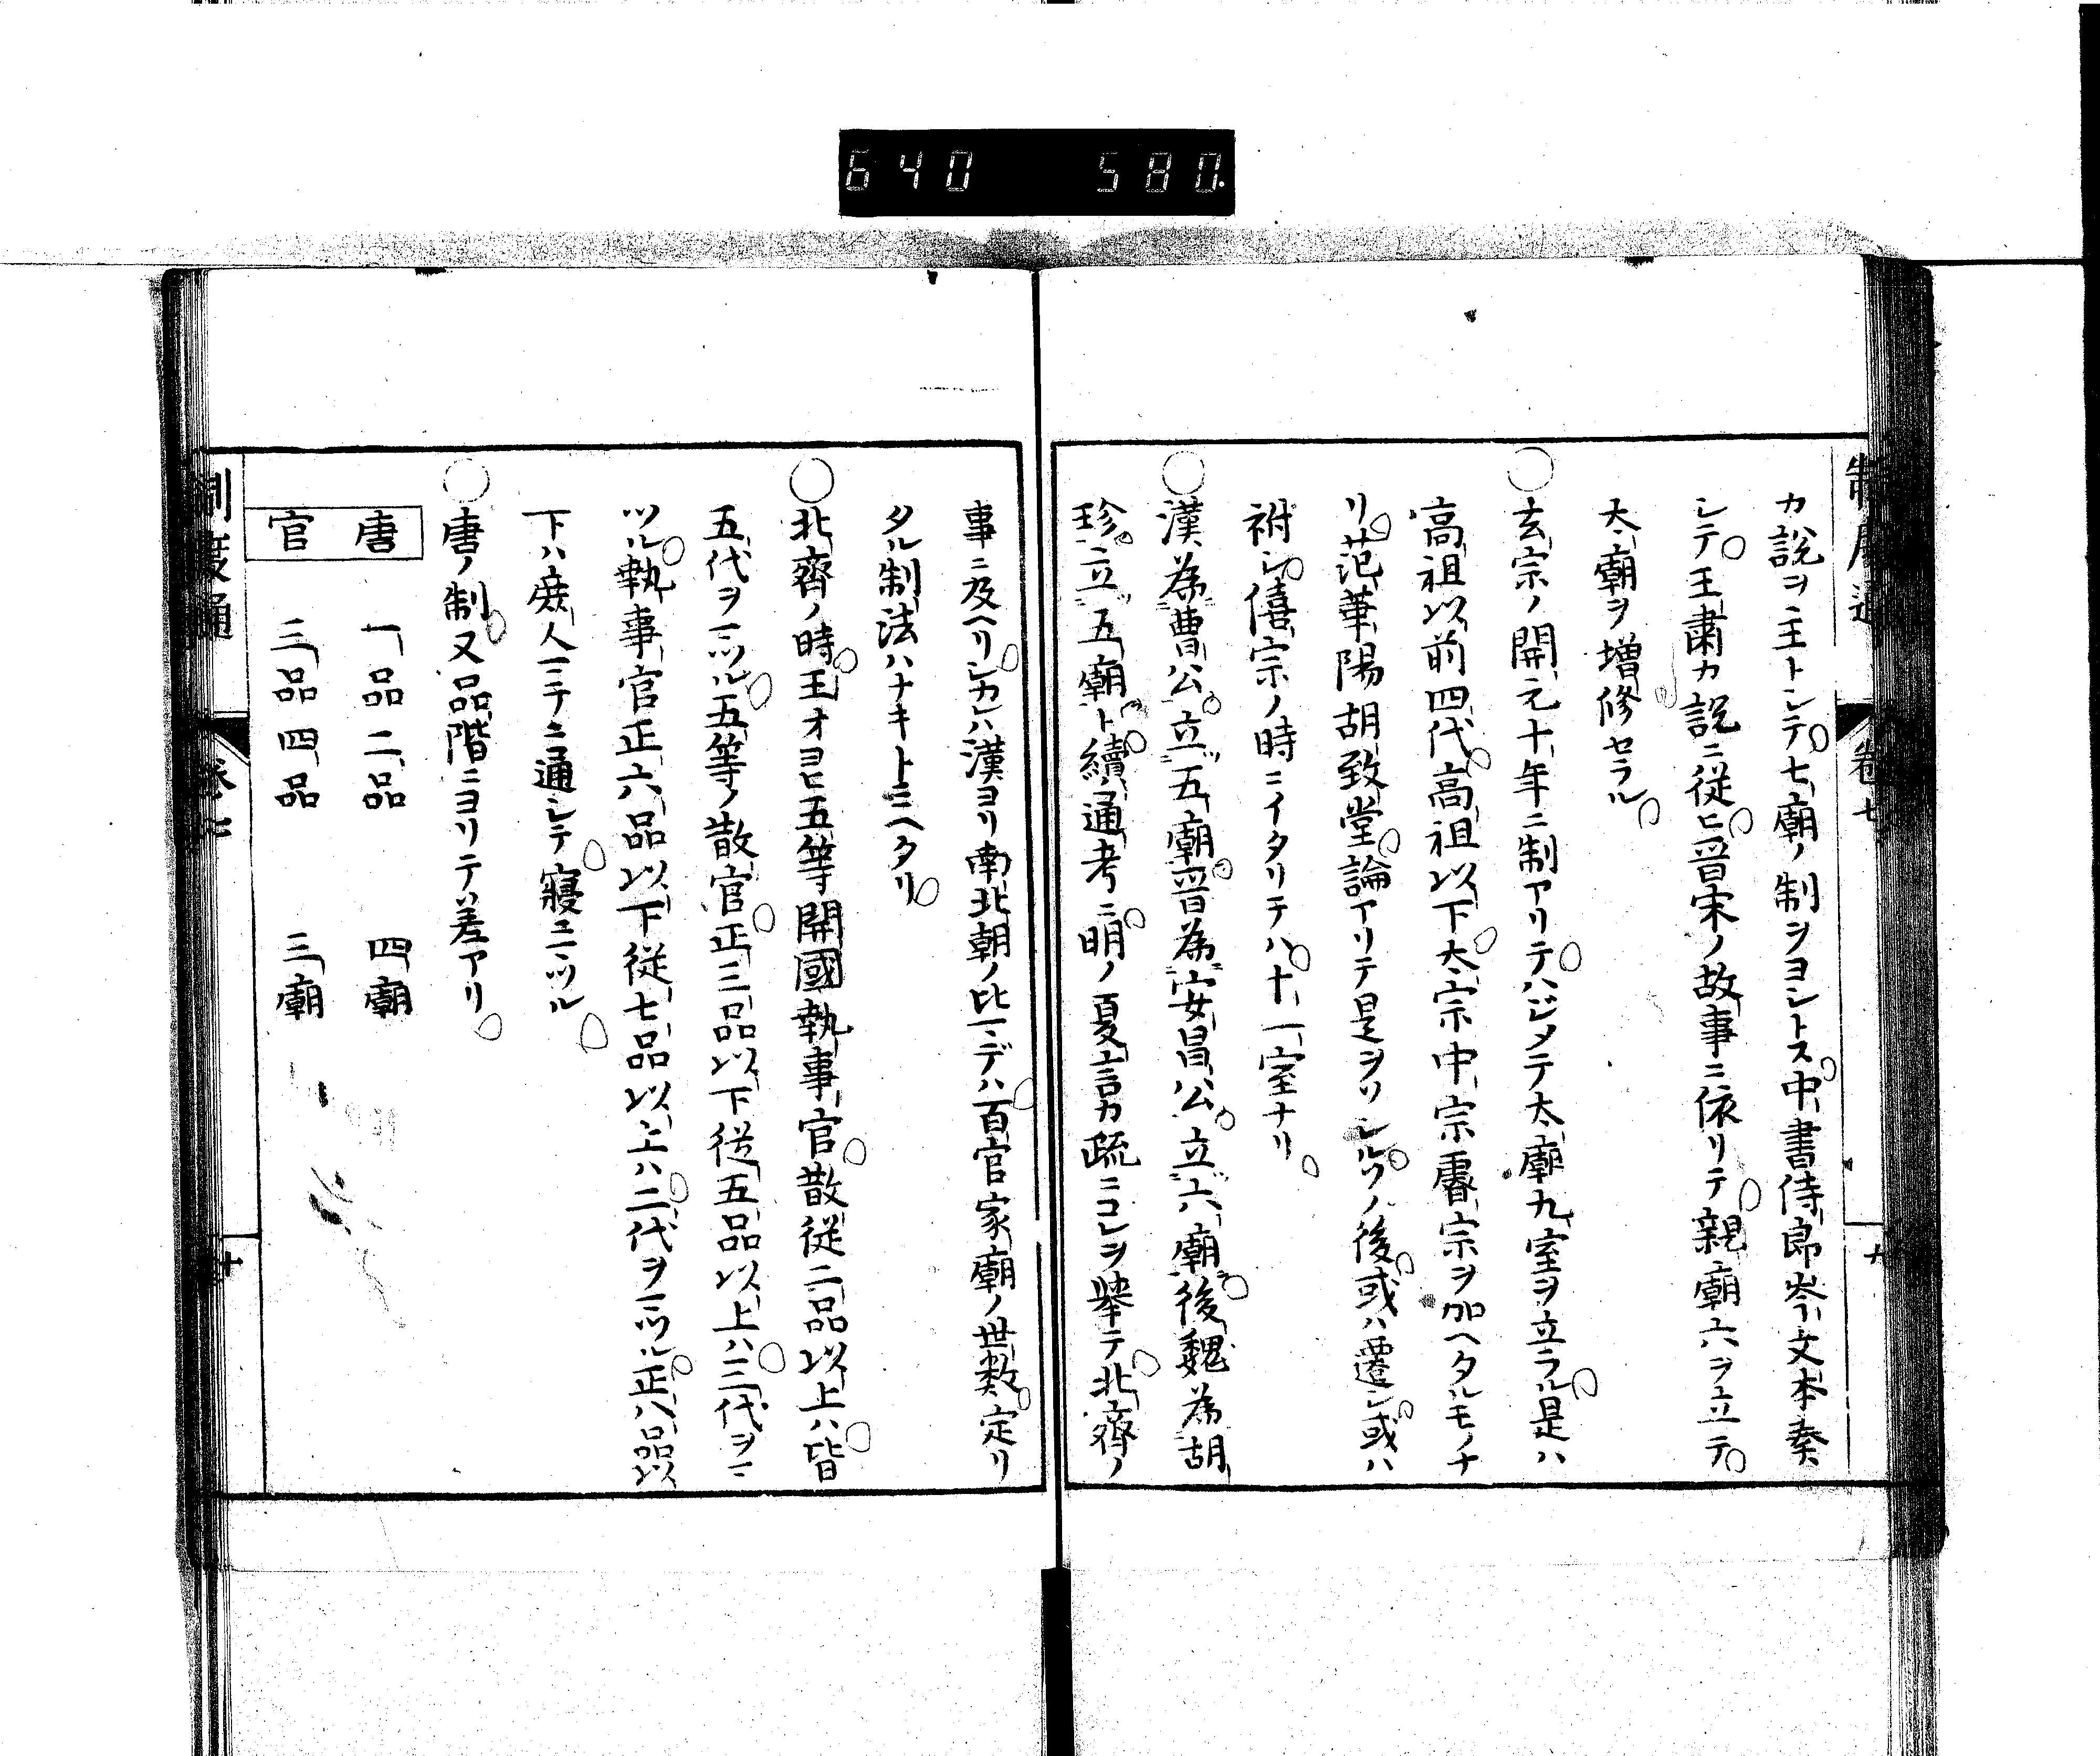 640 580.
制度通 卷七
カ説ヲ主トシテ七廟ノ制ヲヨシトス中書侍郎岑文本奏
シテ王肅カ説ニ従ヒ晋宋ノ故事ニ依リテ親廟六ヲ立テ
太廟ヲ増修セラル
○玄宗ノ開元十年ニ制アリテハジメテ太廟九室ヲ立ラル是ハ
高祖以前四代高祖以下太宗中宗睿宗ヲ加ヘタルモノナ
リ范華陽胡致堂論アリテ是ヲソシルソノ後或ハ遷シ或ハ
祔シ僖宗ノ時ニイタリテハ十一室ナリ
○漢為曹公立五廟晋為安昌公立六廟後魏為胡
珍立五廟ト續通考ニ明ノ夏言カ疏ニコレヲ舉テ北齊ノ
事ニ及ヘリシカハ漢ヨリ南北朝ノ比マデハ百官家廟ノ世数定リ
タル制法ハナキトミヘタリ
○北齊ノ時王オヨヒ五等開國執事官散従二品以上ハ皆
五代ヲマツル五等ノ散官正三品以下従五品以上ハ三代ヲマ
ツル執事官正六品以下従七品以上ハ二代ヲマツル正八品以
下ハ庶人マテニ通シテ寢ニマツル
○唐ノ制又品階ニヨリテ差アリ
唐 一品二品 四廟
官 三品四品 三廟
制度通 卷七 十